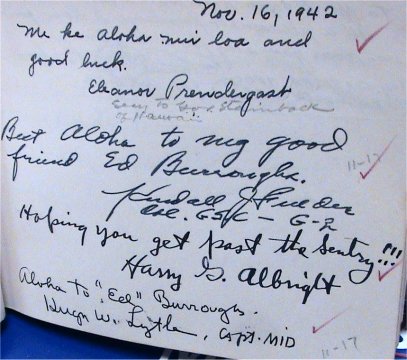 Nov. 16, 1942
Me ke aloha nui loa and
good luck.
Eleanor Prendergast
Secy to Gov. Stainback
of Hawaii
Best Aloha to my good
friend Ed Burroughs.
Kendall J. Fielder
Col. GSC - G-2
Hoping you get past the Sentry!!!
Harry G. Albright
Aloha to "Ed" Burroughs.
Hugh W. Lytle, Capt. MID
11-17
11-17